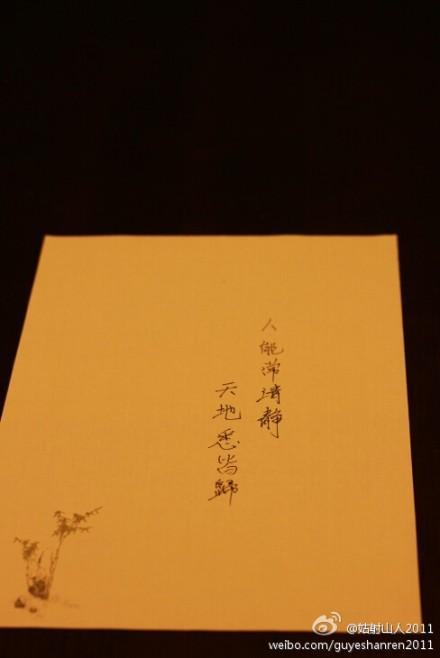 人能常清静
天地悉皆歸
@姑射山人2011
weibo.com/guyeshanren2011